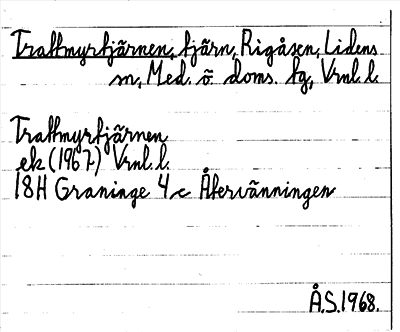 Trattmyrtjärnen, tjärn, Rigåsen, Lidens
sn, Med. ö. doms. tg, Vrnl. l.
Trattmyrtjärnen
ek (1967) Vrnl. l.
18H Graninge 4 c Återvänningen
Å.S. 1968.